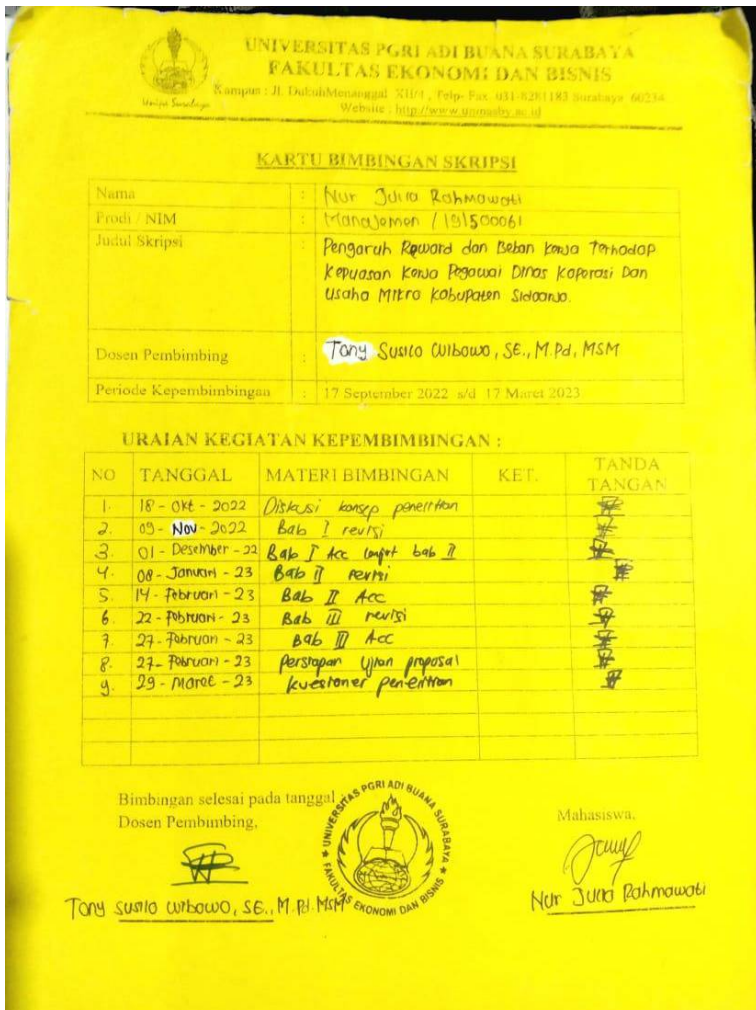 UNIVERSITAS PGRI ADI BUANA SURABAYA
FAKULTAS EKONOMI DAN BISNIS
Kampus : Jl. DukuhMenanggal XII/4 , Telp- Fax. 031-8281183 Surabaya 60234
Website : http://www.unipasby.ac.id
Unipa Surabaya
KARTU BIMBINGAN SKRIPSI
Nama : Nur Julia Rahmawati
Prodi / NIM : Manajemen / 191500061
Judul Skripsi : Pengaruh Reward dan Beban Kerja Terhadap
Kepuasan Kerja Pegawai Dinas Koperasi Dan
Usaha Mikro Kabupaten Sidoarjo.
Dosen Pembimbing : Tony Susilo Wibowo, SE., M.Pd, MSM
Periode Kepembimbingan : 17 September 2022 s/d 17 Maret 2023
URAIAN KEGIATAN KEPEMBIMBINGAN :
NO TANGGAL MATERI BIMBINGAN KET. TANDA TANGAN
1. 18 - Okt - 2022 Diskusi konsep penelitian
2. 09 - Nov - 2022 Bab I revisi
3. 01 - Desember - 22 Bab I Acc lanjut bab II
4. 08 - Januari - 23 Bab II revisi
5. 14 - Februari - 23 Bab II Acc
6. 22 - Februari - 23 Bab III revisi
7. 27 - Februari - 23 Bab III Acc
8. 27 - Februari - 23 Persiapan Ujian proposal
9. 29 - Maret - 23 kuesioner penelitian
Bimbingan selesai pada tanggal
Dosen Pembimbing, Mahasiswa,
UNIVERSITAS PGRI ADI BUANA SURABAYA
FAKULTAS EKONOMI DAN BISNIS
Tony Susilo Wibowo, SE., M.Pd. MSM Nur Julia Rahmawati